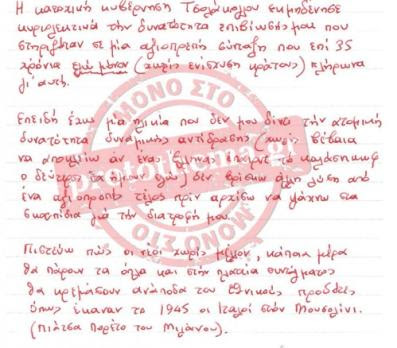 Η κατοχική κυβέρνηση Τσολάκογλου εκμηδένησε
κυριολεκτικά την δυνατότητα επιβίωσής μου που
στηριζόταν σε μία αξιοπρεπή σύνταξη που επί 35
χρόνια εγώ μόνον (χωρίς ενίσχυση κράτους) πλήρωνα
γι' αυτή.
Επειδή έχω μία ηλικία που δεν μου δίνει την ατομική
δυνατότητα δυναμικής αντίδρασης (χωρίς βέβαια
να αποκλείω αν ένας Έλληνας έπαιρνε το καλάσνικωφ
ο δεύτερος θα ήμουν εγώ) δεν βρίσκω άλλη λύση από
ένα αξιοπρεπές τέλος πριν αρχίσω να ψάχνω στα
σκουπίδια για την διατροφή μου.
Πιστεύω πως οι νέοι χωρίς μέλλον, κάποια μέρα
θα πάρουν τα όπλα και στην πλατεία συντάγματος
θα κρεμάσουν ανάποδα τους εθνικούς προδότες
όπως έκαναν το 1945 οι Ιταλοί στον Μουσολίνι.
(Πιάτσα Παρέτο του Μιλάνου).
ΜΟΝΟ ΣΤΟ
protothema.gr
ΜΟΝΟ ΣΤΟ